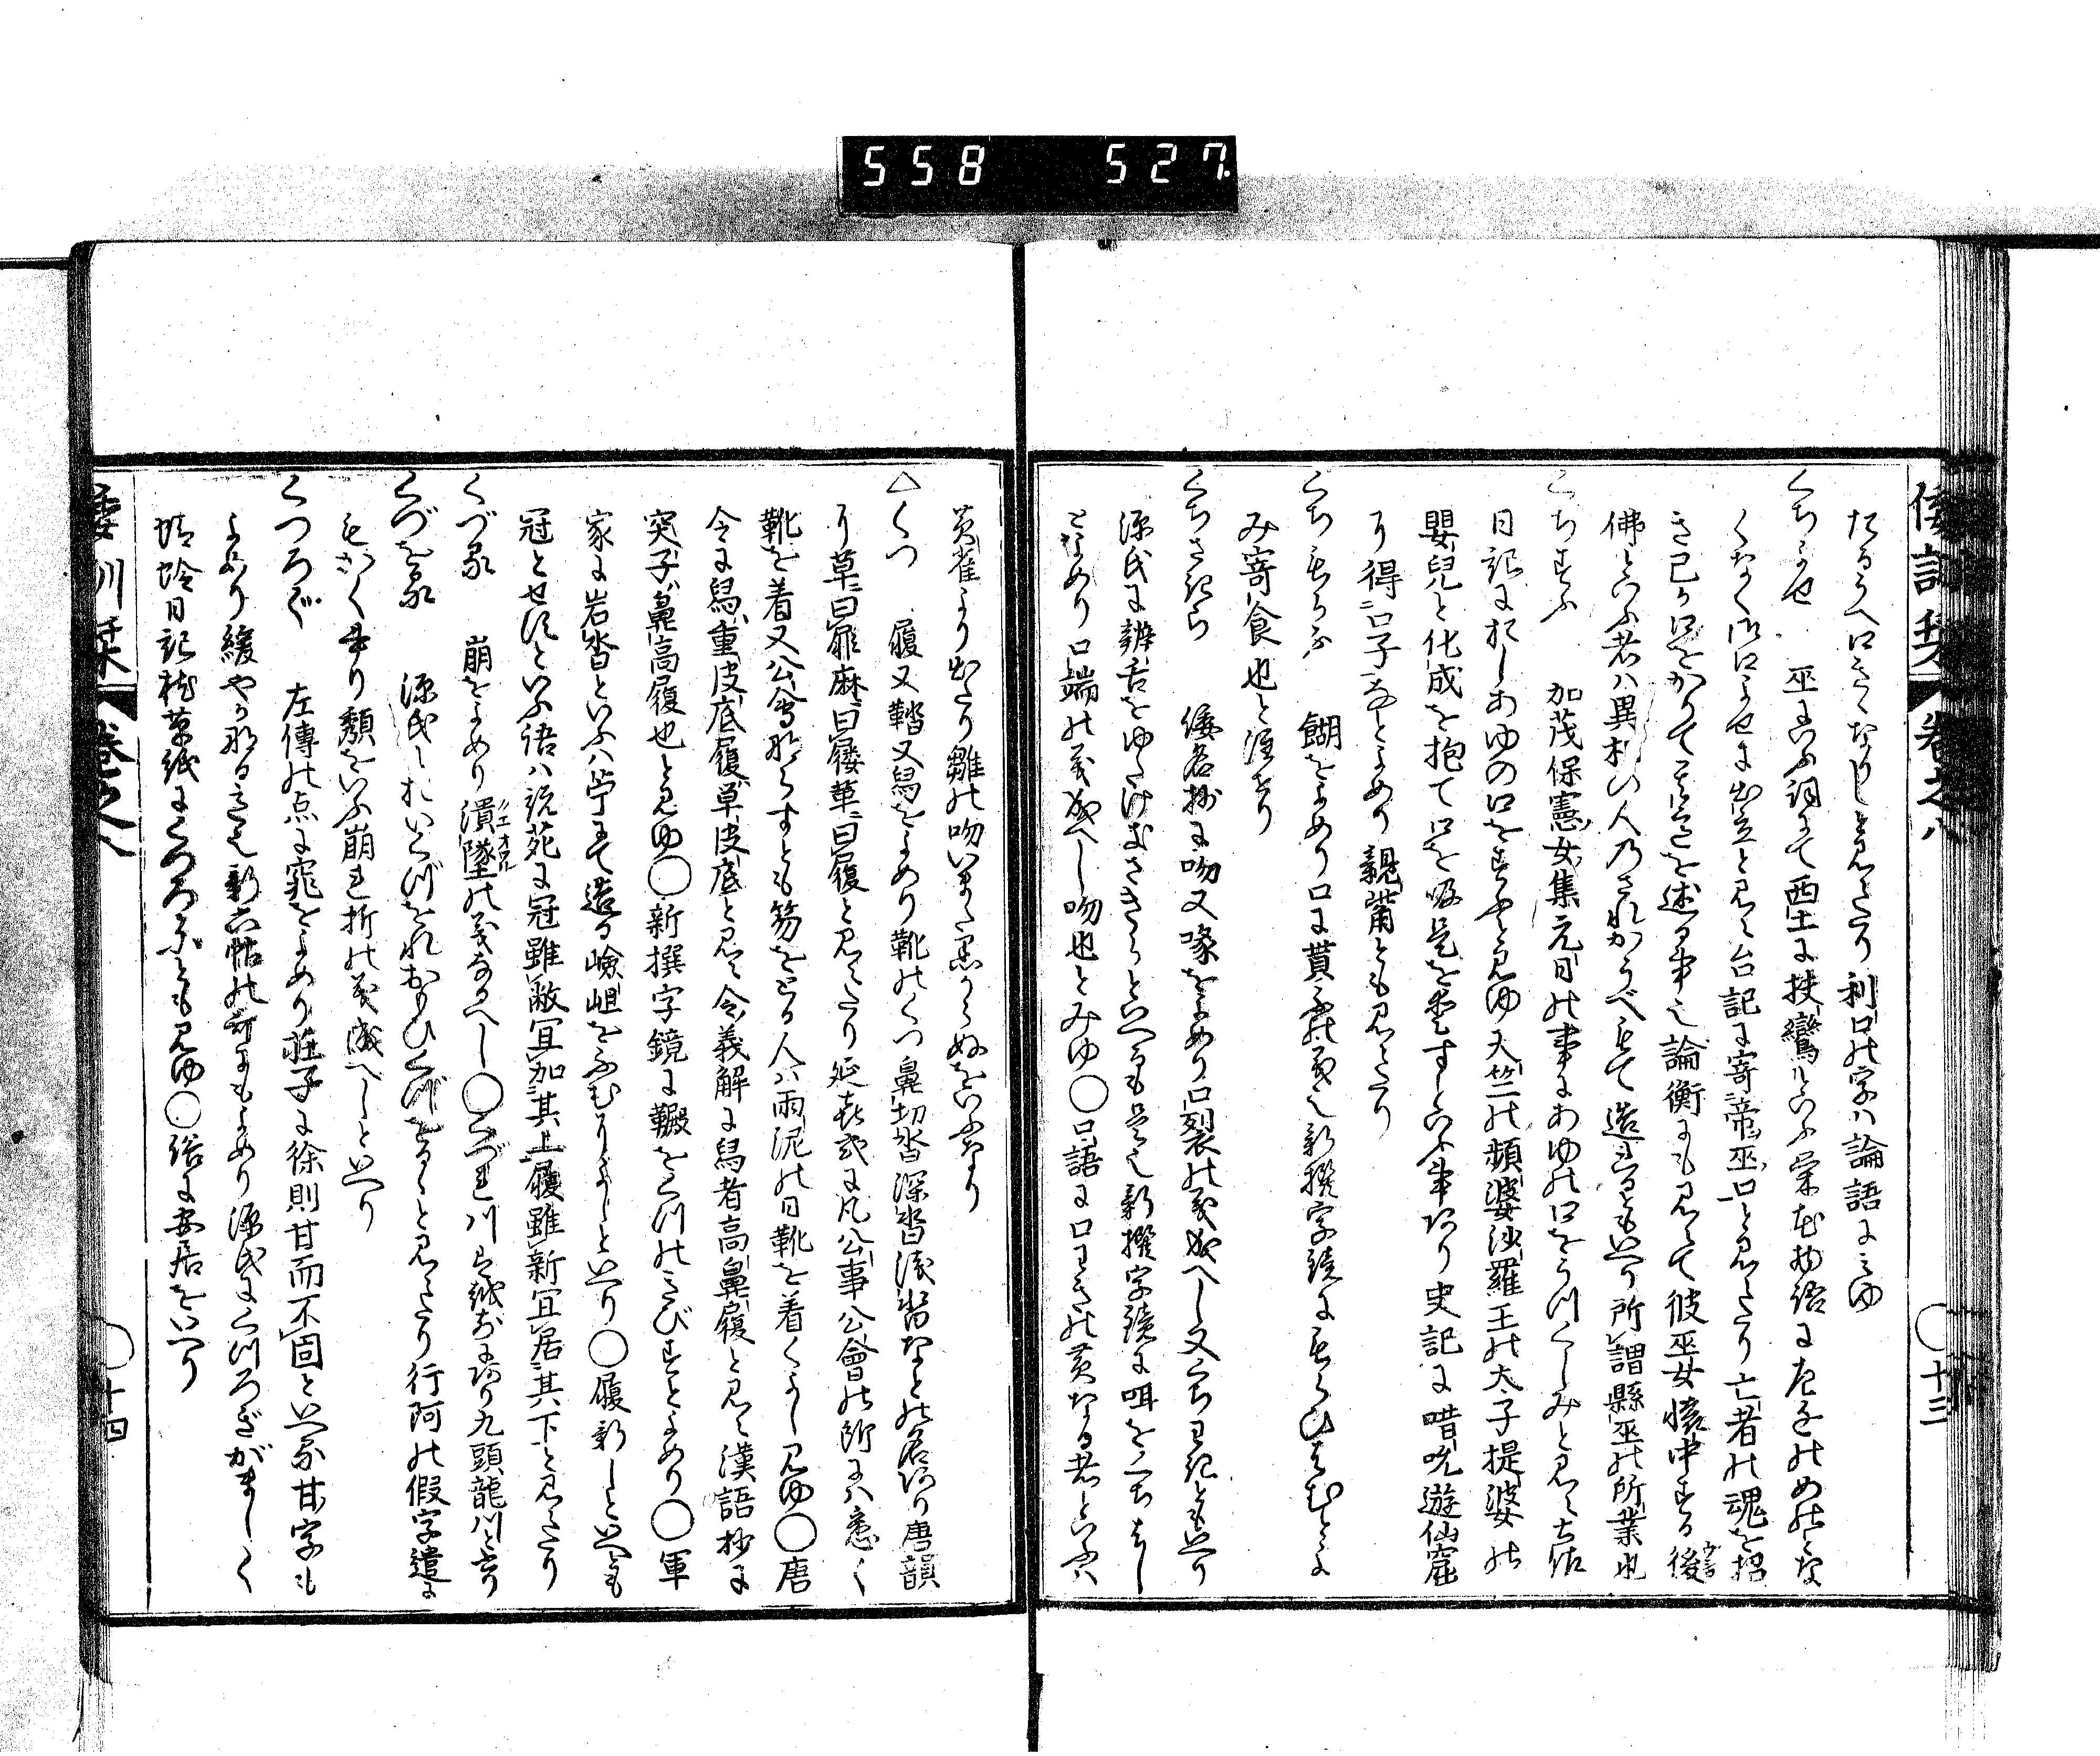 558 527
倭訓栞 巻之八 ○十三
たるうへ口きゝなりしと見えたり利口の字ハ論語にみゆ
くちよせ 巫をいふ詞にて西土に扶鸞といふ
くなく御口よせに出立と見え台記に寄帝巫口と見えたり亡者の魂を招
き己か口をかりて其言を述る事也論衡にも見えて彼巫女懐中する
佛といふ者ハ異相の人のされかうべもて造るともいへり所謂縣巫の所業也
くちすふ 加茂保憲女集元日の事にあゆの口をうつくしみと見え土佐
日記におしあゆの口をすふと見ゆ天竺の頻婆沙羅王の太子提婆の
嬰兒と化成を抱て口を吸是を愛すといふ事あり史記に唶吮遊仙窟
に得口子などよめり親嘴とも見えたり
くちもらふ 餬をよめり口に貰ふの義也新撰字鏡にもらひはむとよ
み寄食也と注せり
くちさきら 倭名抄に吻又喙をよめり口裂の義成へし又くちわきともいへり
源氏に辨舌をゆたけきさきらといへるも是也新撰字鏡に咡をくちはし
とよめり口端の義成へし吻也とみゆ○口語に口わきの黄なる者といふハ
黄雀より出たり雛の吻いまた黒からぬをいふなり
△くつ 履又鞜又舃をよめり靴のくつ鼻切沓深沓浅沓なとの名あり唐韻
に草曰扉麻曰屨革曰履と見えたり延喜式に凡公事公會の所にハ悉く
靴を着又公會ならすとも笏をとる人ハ雨泥の日靴を着くよし見ゆ○唐
令に舃重皮底履單皮底と見え令義解に舃者高鼻履と見え漢語抄に
突子ハ鼻高履也と見ゆ○新撰字鏡に䩠をくつのきびすとよめり○軍
家に岩沓といふハ苧もて造る嶮岨をふむによしといへり○履新しといへとも
冠とせすといふ語ハ説苑に冠雖敝宜加其上履雖新宜居其下と見えたり
くづる 崩をよめり潰墜の義なるへし○くづれ川ハ越前にあり九頭龍川と書り
くづをる 源氏においくづをれおもひくづをるゝと見えたり行阿の假字遣に
もかく書り頽をいふ崩れ折の義成へしといへり
くつろぐ 左傳の点に窕をよめり莊子に徐則甘而不固といへる甘字も
よめり緩やかなる意也新六帖の哥にもよめり源氏にくつろぎがましく
蜻蛉日記枕草紙にくつろかとも見ゆ○俗に安居をいへり
倭訓栞 巻之八 ○十四